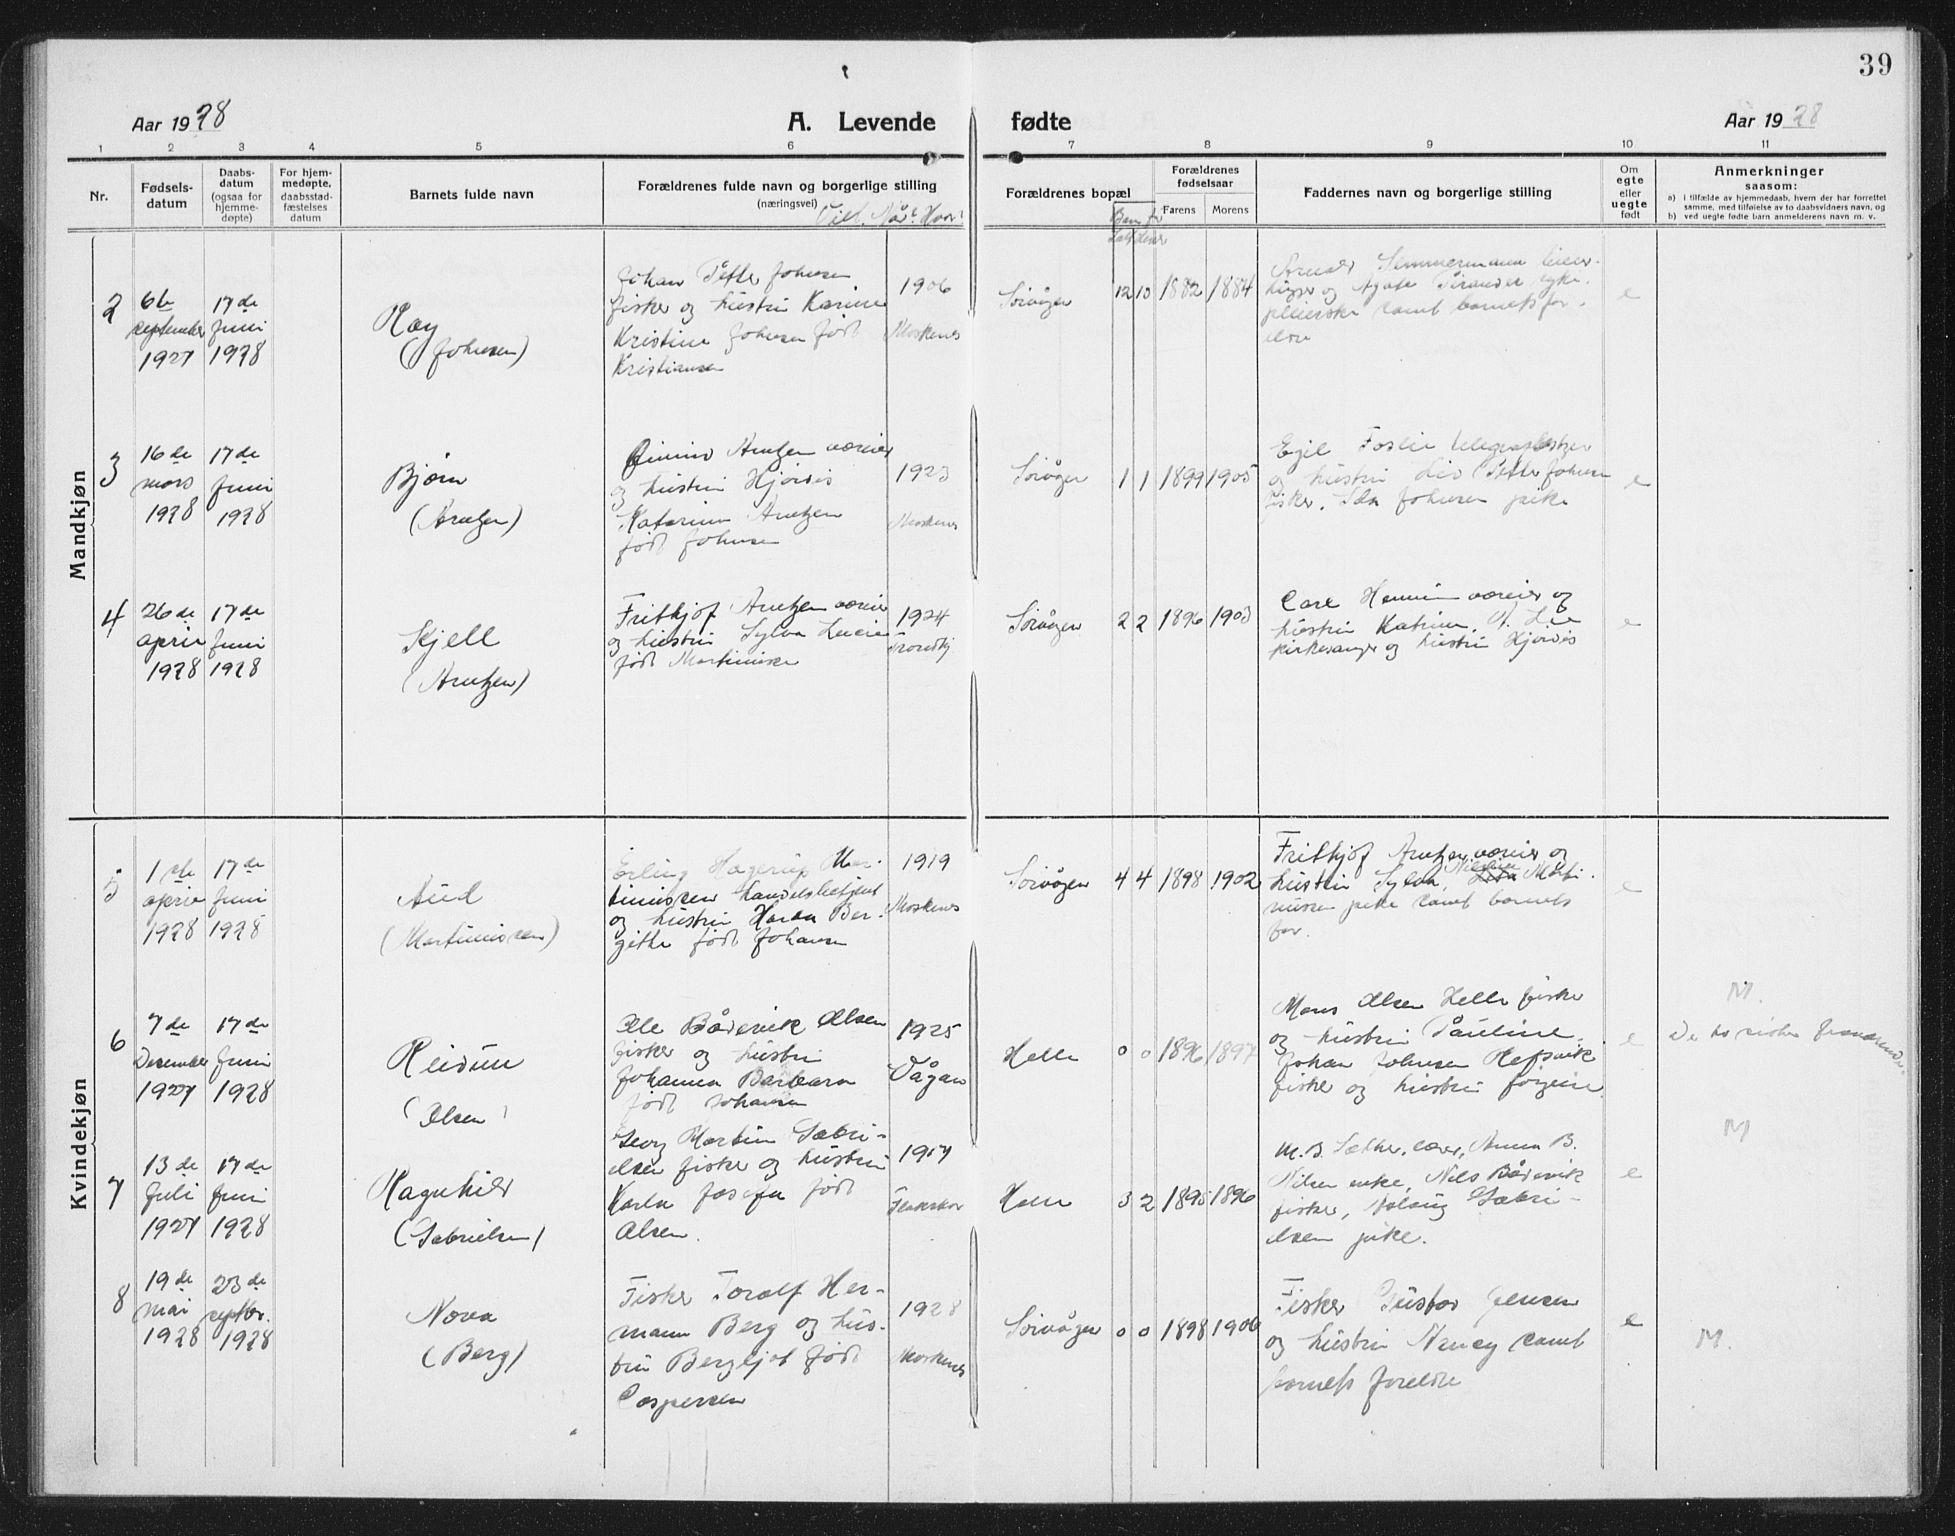 39
Aar 1928
A. Levende fødte
Aar 1928
1 2 3 4 5 6 7 8 9 10 11
Nr.
Fødsels-
datum
Daabs-
datum
(ogsaa for
hjemme-
døpte)
For hjem-
medøpte,
daabsstad-
fæstelses
datum
Barnets fulde navn
Forældrenes fulde navn og borgerlige stilling
(næringsvei)
Viet. Når? Hvor?
Forældrenes bopæl
Forældrenes
fødselsaar
Farens Morens
Faddernes navn og borgerlige stilling
Om
egte
eller
uegte
født
Anmerkninger
saasom:
a) i tilfælde av hjemmedaab, hvem der har forrettet
samme, med tilføielse av to daabsvidners navn, og
b) ved uegte fødte barn anmelderens navn m. v.
Mandkjøn
2
6te
september
1927
17de
juni
1928
Roy
(Johnsen)
Johan Petter Johnsen
fisker og hustru Karine
Kristine Johnsen født
Kristiansen
1906
Moskenes
Sørvågen
12 10 1882 1884
samt barnets for-
eldre
e
3
16de
mars
1928
17de
juni
1928
Bjørn
(Arntzen)
Arntzen væreier
og hustru Hjørdis
Katarina Arntzen
født Johnsen
1923
Moskenes
Sørvågen
1 1 1899 1905
Egil Foslie telegrafbestyrer
og hustru Liv, Petter Johnsen
fisker, Johnsen pike
e
4
26de
april
1928
17de
juni
1928
Kjell
(Arntzen)
Fritkjof Arntzen væreier
og hustru Sylva Lucie
født Martinissen
1924
Trondhj
Sørvågen
2 2 1896 1903
væreier og
hustru Katrine,
kirkesanger og hustru Hjørdis
e
Kvindekjøn
5
1ste
april
1928
17de
juni
1928
Aud
(Martinissen)
Erling Hagerup Mar-
tinissen handelsbetjent
og hustru Ber-
githe født Johansen
1919
Moskenes
Sørvågen
4 4 1898 1902
Fritkjof Arntzen væreier og
hustru Sylva, Marti-
nissen pike samt barnets
far.
e
6
7de
Desember
1927
17de
juni
1928
Reidun
(Olsen)
Ole Bårdsvik Olsen
fisker og hustru
Johanna Barbara
født Johansen
1925
Vågan
Helle
0 0 1896 1897
Mons Olsen Helle fisker
og hustru Pauline,
Johan Johnsen Refsvik
fisker og hustru
e
M.
De to siste
7
13de
juli
1927
17de
juni
1928
Ragnhild
(Gabrielsen)
Georg Martin Gabri-
elsen fisker og hustru
Karla Josefa født
Olsen.
1917
Flakstad
Helle
3 2 1895 1896
M. B. Sæther, lærer, Anna B.
Nilsen enke, Nils Bårdsvik
fisker, Aslaug Gabri-
elsen pike.
e
M
8
19de
mai
1928
23de
septbr.
1928
Nora
(Berg)
Fisker Toralf Her-
mann Berg og hus-
tru Bergljot født
Caspersen
1928
Moskenes
Sørvågen
0 0 1898 1906
Fisker Gustav Jensen
og hustru Nancy samt
barnets foreldre
e
M.